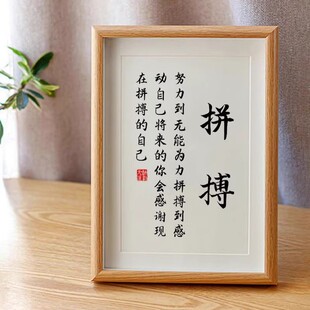 拼搏
努力到无能为力拼搏到感
动自己将来的你会感谢现
在拼搏的自己